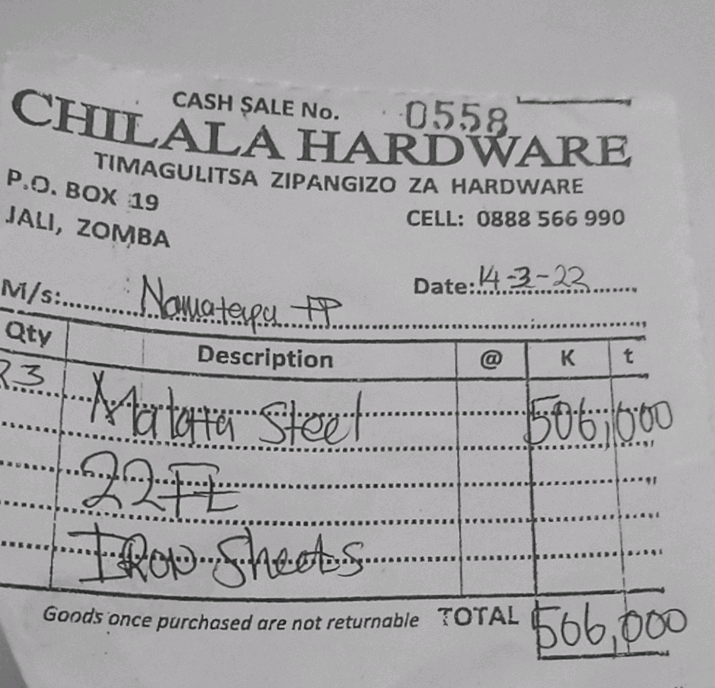 CASH SALE No. 0558
CHILALA HARDWARE
TIMAGULITSA ZIPANGIZO ZA HARDWARE
P.O. BOX 19
JALI, ZOMBA
CELL: 0888 566 990
Date: 14-3-22
M/s: FP
Qty Description @ K t
23 Steel 506,000
22FT
IRON Sheets
Goods once purchased are not returnable TOTAL 506,000